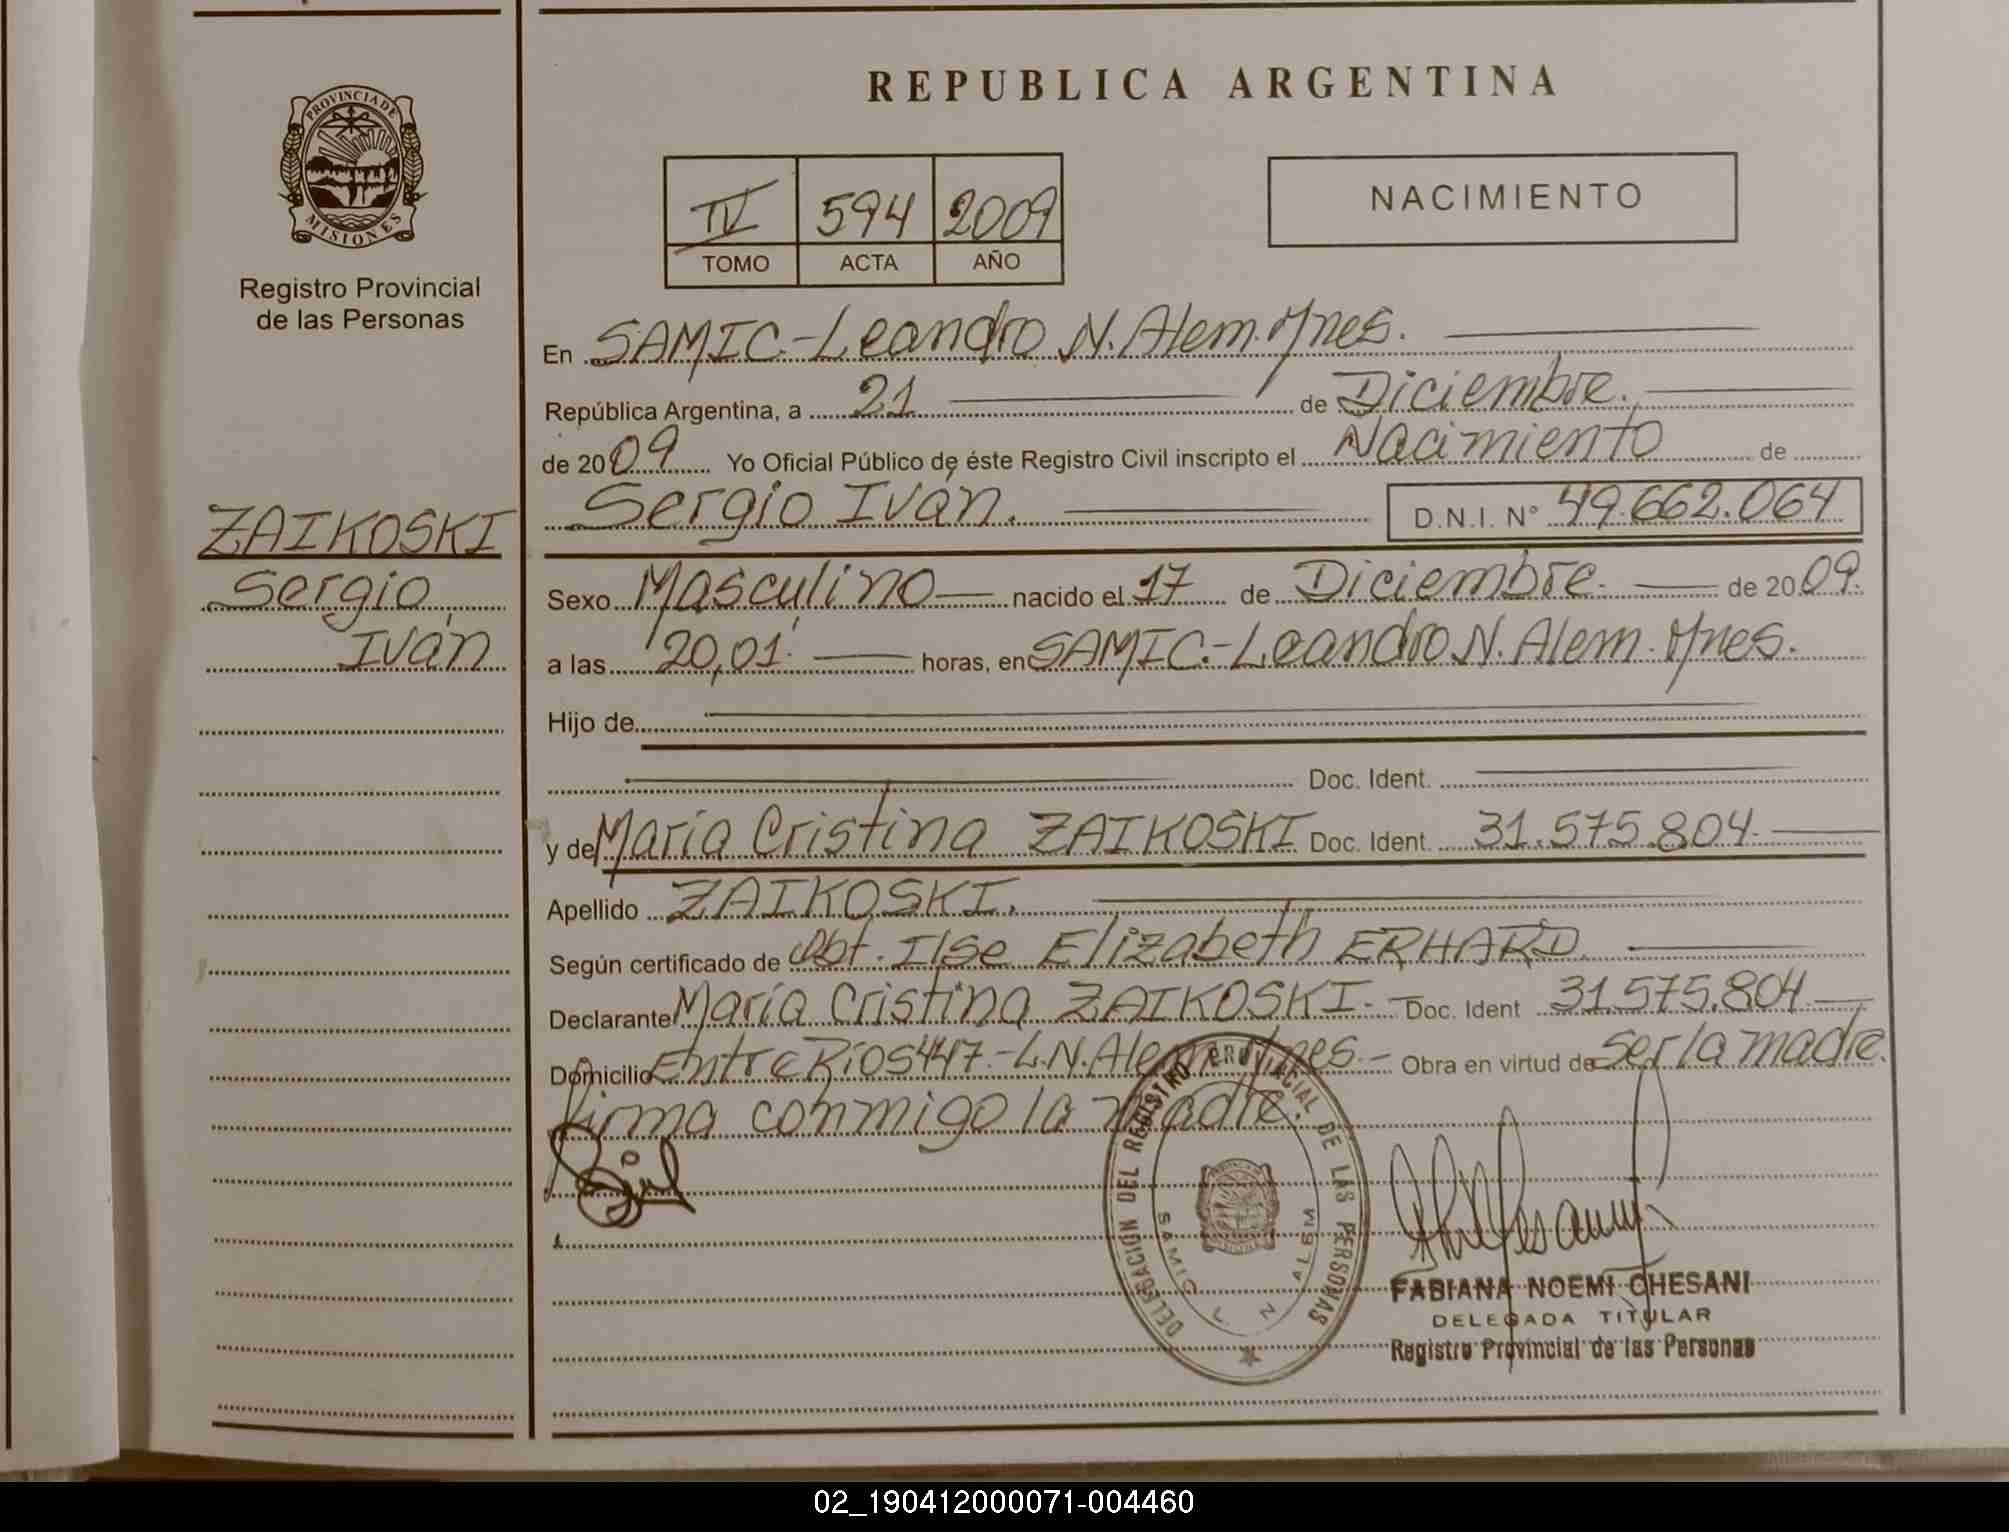 PROVINCIA DE
MISIONES
Registro Provincial
de las Personas
ZAIKOSKI
Sergio
Iván
REPUBLICA ARGENTINA
IV 594 2009
TOMO ACTA AÑO
NACIMIENTO
En SAMIC.-Leandro N. Alem. Mnes.
República Argentina, a 21 de Diciembre.
de 2009 Yo Oficial Público de éste Registro Civil inscripto el Nacimiento de
Sergio Iván. D.N.I. N° 49.662.064
Sexo Masculino nacido el 17 de Diciembre. de 2009.
a las 20,01. horas, en SAMIC.-Leandro N. Alem. Mnes.
Hijo de
Doc. Ident.
y de María Cristina ZAIKOSKI Doc. Ident. 31.575.804.
Apellido ZAIKOSKI.
Según certificado de Obt. Ilse Elizabeth ERHARD
Declarante María Cristina ZAIKOSKI.- Doc. Ident 31.575.804
Domicilio Entre Ríos 447.-L.N.Alem Mnes.- Obra en virtud de ser la madre.
firma conmigo la madre.
DELEGACION DEL REGISTRO PROVINCIAL DE LAS PERSONAS
SAMIC L N ALEM
FABIANA NOEMI CHESANI
DELEGADA TITULAR
Registro Provincial de las Personas
02_190412000071-004460